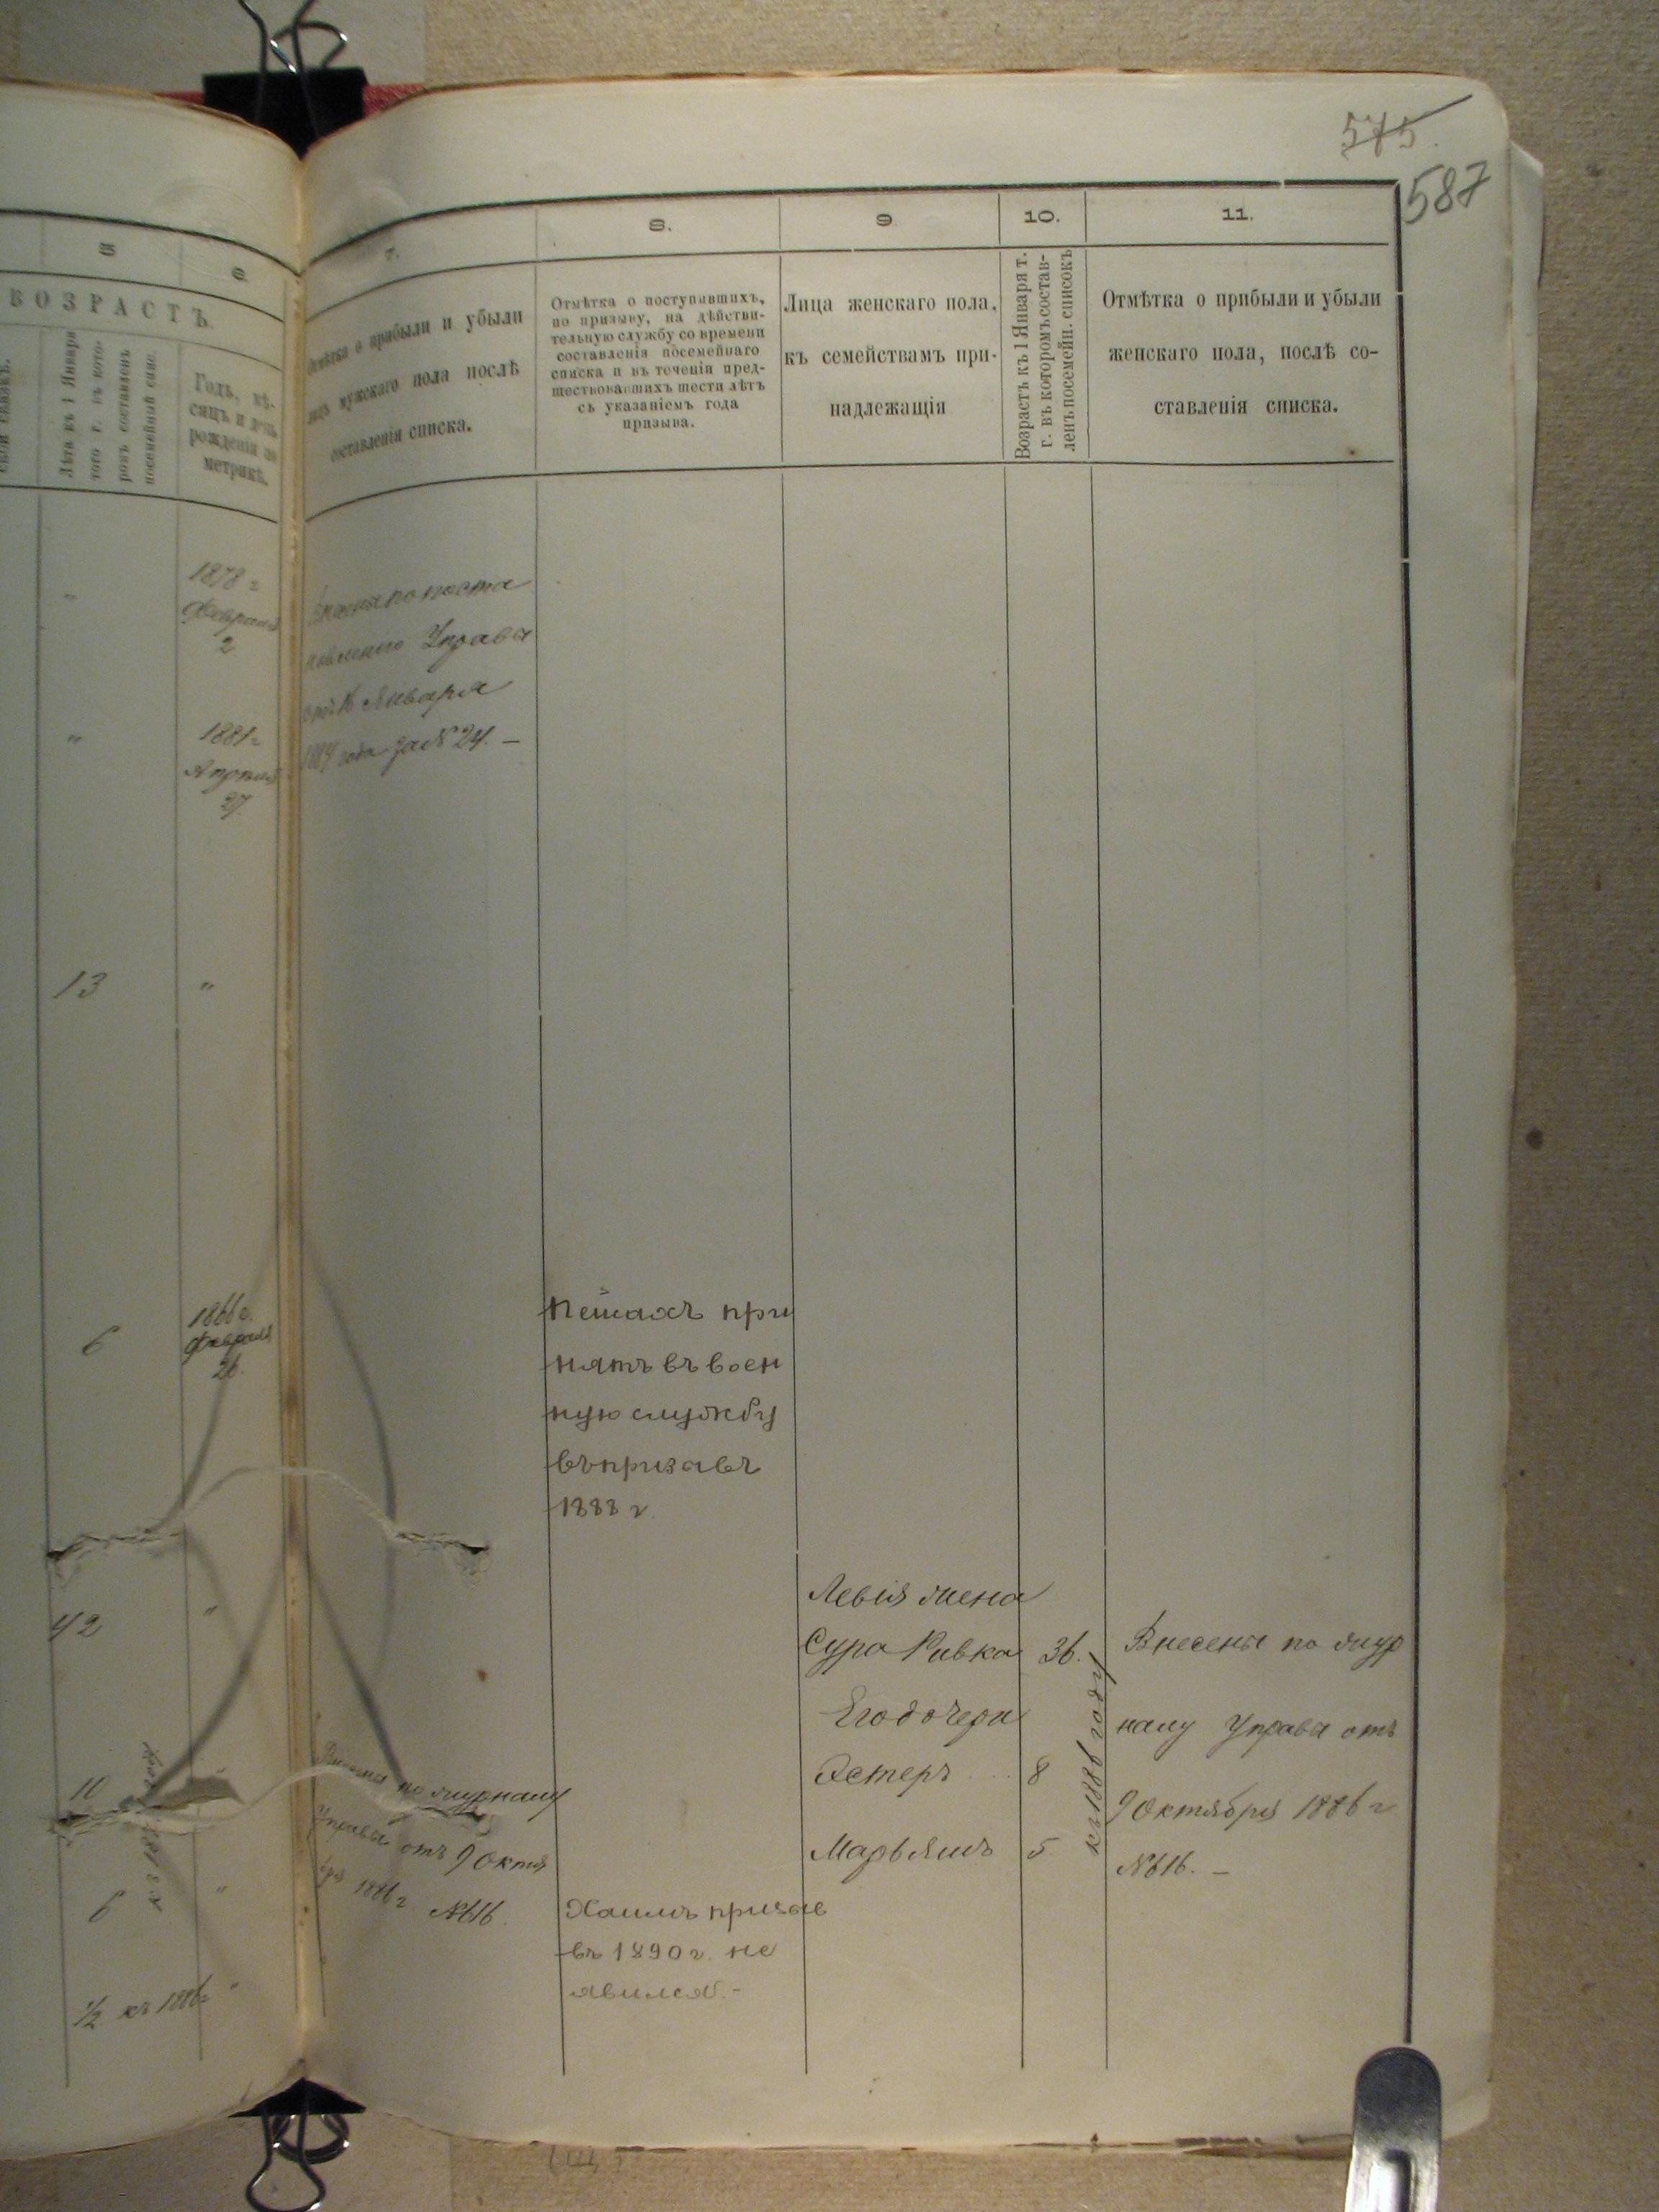 575.
587
5
6
7.
8.
9
10.
11.
ВОЗРАСТЪ
Лѣта къ 1 Января
того г. въ кото-
ромъ составленъ
посемейный спис.
Годъ, мѣ-
сяцъ и день
рожденія по
метрикѣ.
Отмѣтка о прибыли и убыли
лицъ мужскаго пола послѣ
составленія списка.
Отмѣтка о поступившихъ,
по призыву, на дѣйстви-
тельную службу со времени
составленія посемейнаго
списка и въ теченіи пред-
шествовавшихъ шести лѣтъ
съ указаніемъ года
призыва.
Лица женскаго пола,
къ семействамъ при-
надлежащія
Возрастъ къ 1 Января т.
г. въ которомъ состав-
ленъ посемейн. списокъ
Отмѣтка о прибыли и убыли
женскаго пола, послѣ со-
ставленія списка.
"
1878 г
Февраля
2
по поста
новленію Управы
Января
года за № 24. —
"
1881 г
Апрѣля
27.
13
"
6
1866 г.
Февраля
26.
Пейсахъ при
нятъ въ воен
ную службу
въ призавъ
1888 г.
42
"
Левія жена
Сура Ривка 36.
Его дочери
Эстеръ 8
Марьямъ 5
къ 1886 году
Внесены по жур
налу Управы отъ
9 Октября 1886 г
№ 616. —
11
по журналу
Управы отъ 9 Октя
бря 1886 г № 616.
6
"
Хаимъ призыв
въ 1890 г. не
явился. –
1/2 къ 1886 г "